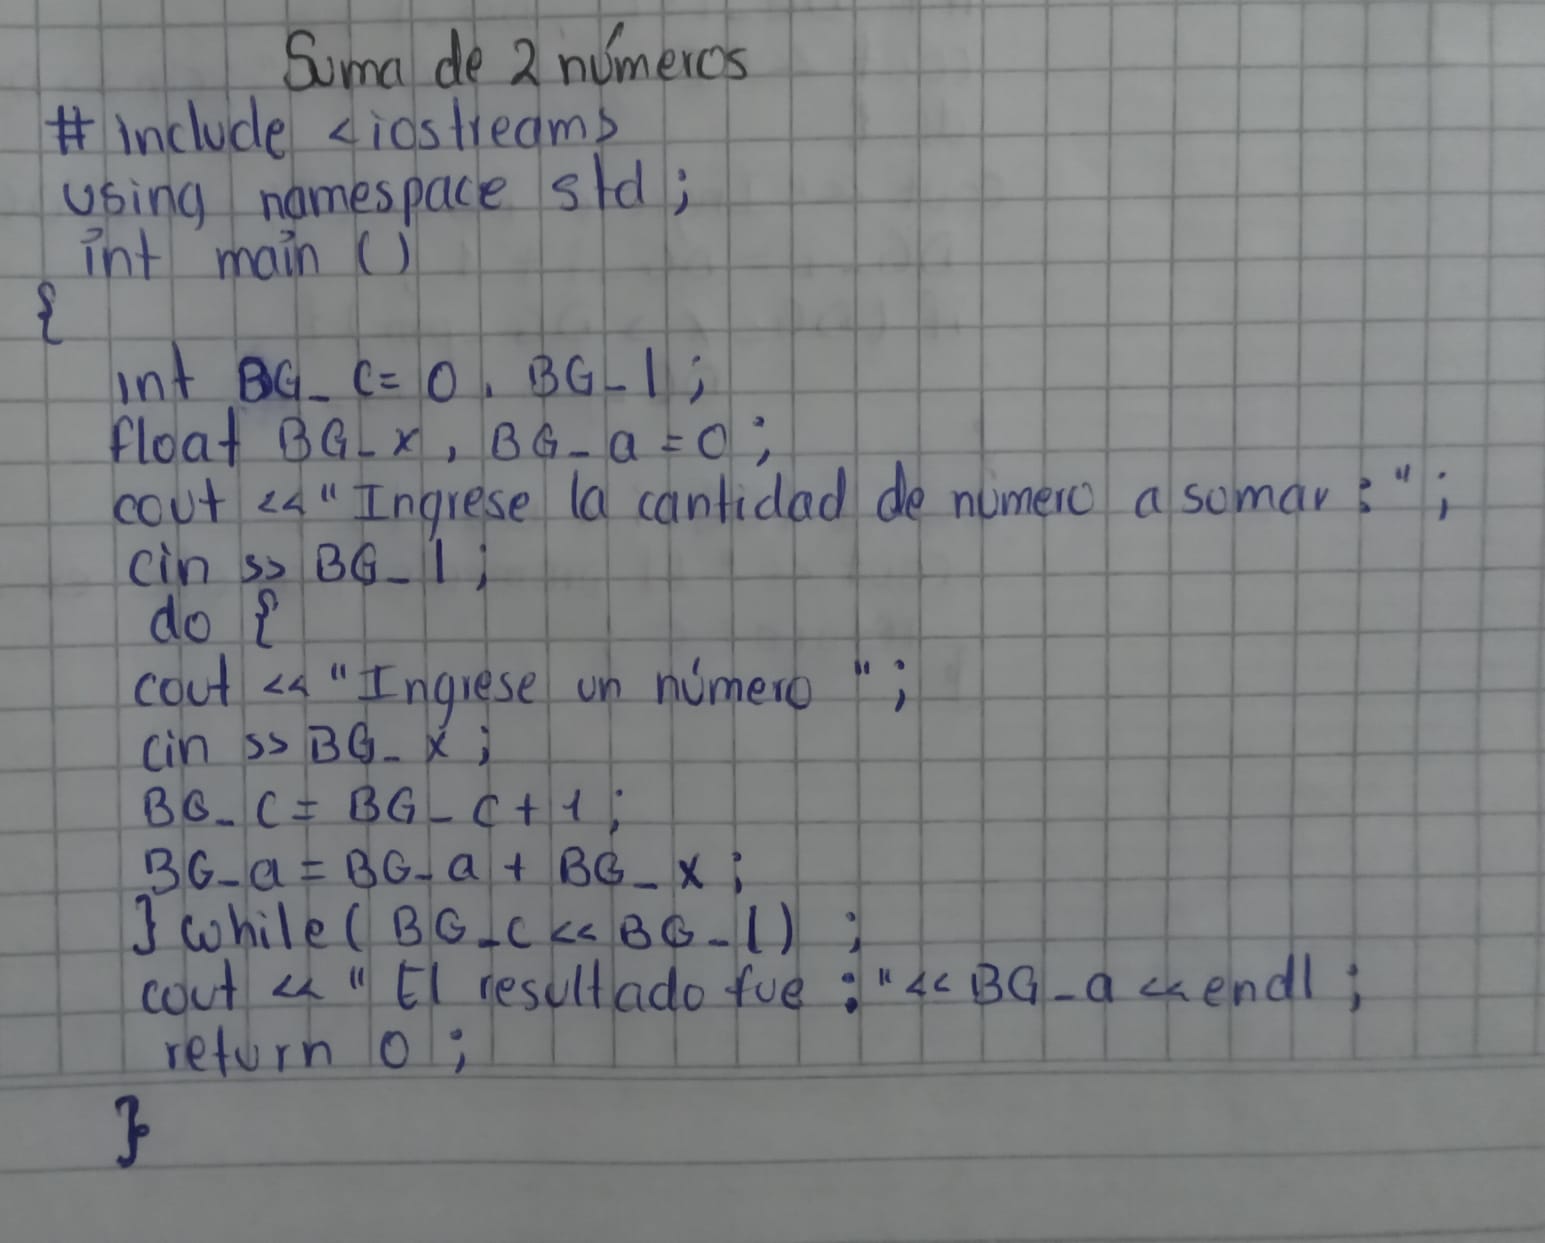 Suma de 2 números
# include <iostream>
using namespace std ;
int main ()
{
int BG_ c= 0 , BG_l ;
float BG_x , BG_a = 0 ;
cout << " Ingrese la cantidad de número a somar : " ;
cin >> BG_l ;
do {
cout << " Ingrese un número " ;
cin >> BG_x ;
BG_ c = BG_c + 1 ;
BG_a = BG_a + BG_x ;
} while ( BG_c << BG_l ) ;
cout << " El resultado fue : " << BG_a << endl ;
return 0 ;
}